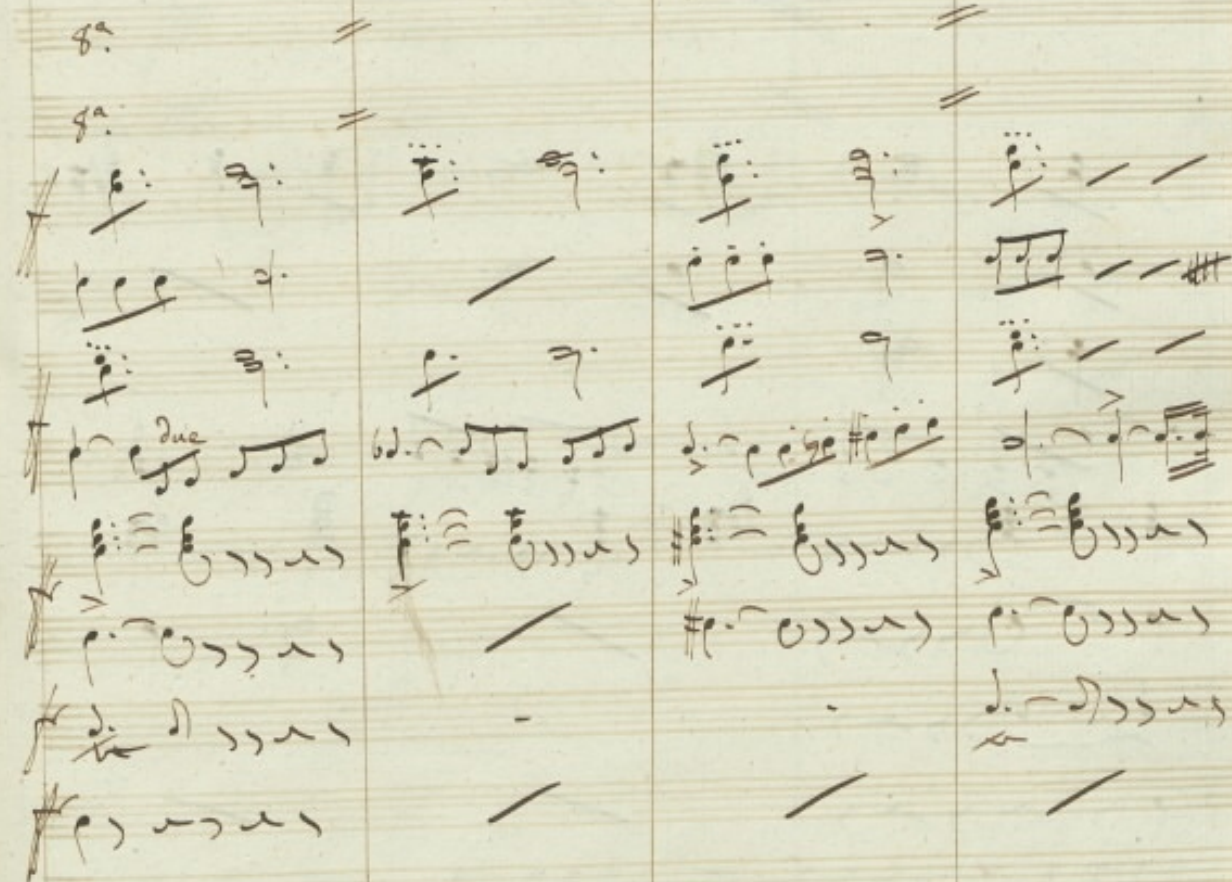 8ª
8ª
due